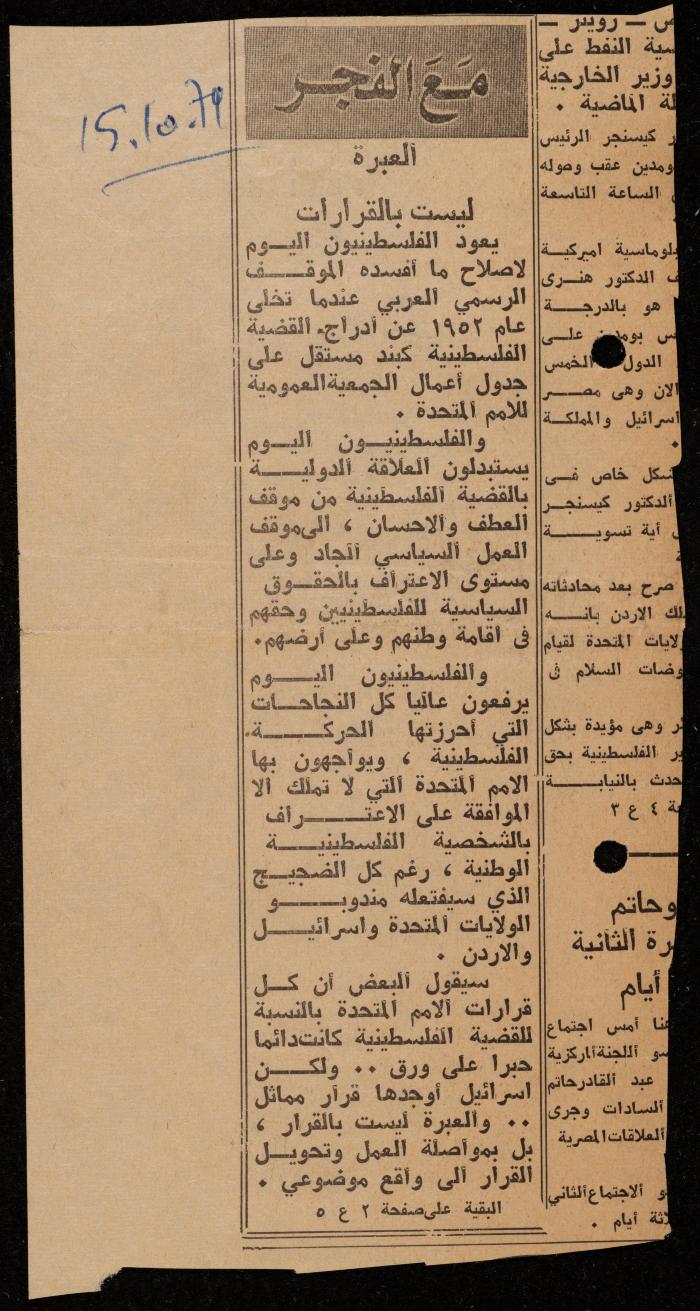 15.10.74
مع الفجر
العبرة
ليست بالقرارات
يعود الفلسطينيون اليوم
لاصلاح ما أفسده الموقف
الرسمي العربي عندما تخلى
عام ١٩٥٢ عن أدراج القضية
الفلسطينية كبند مستقل على
جدول أعمال الجمعية العمومية
للامم المتحدة .
والفلسطينيون اليوم
يستبدلون العلاقة الدولية
بالقضية الفلسطينية من موقف
العطف والاحسان ، الى موقف
العمل السياسي الجاد وعلى
مستوى الاعتراف بالحقوق
السياسية للفلسطينيين وحقهم
في اقامة وطنهم وعلى أرضهم.
والفلسطينيون اليوم
يرفعون عاليا كل النجاحات
التي أحرزتها الحركة
الفلسطينية ، ويواجهون بها
الامم المتحدة التي لا تملك الا
الموافقة على الاعتراف
بالشخصية الفلسطينية
الوطنية ، رغم كل الضجيج
الذي سيفتعله مندوبو
الولايات المتحدة واسرائيل
والاردن .
سيقول البعض أن كل
قرارات الامم المتحدة بالنسبة
للقضية الفلسطينية كانت دائما
حبرا على ورق .. ولكن
اسرائيل أوجدها قرار مماثل
.. والعبرة ليست بالقرار ،
بل بمواصلة العمل وتحويل
القرار الى واقع موضوعي .
البقية على صفحة ٢ ع ٥
ص — رويتر —
سية النفط على
وزير الخارجية
لة الماضية .
ر كيسنجر الرئيس
ومدين عقب وصوله
الساعة التاسعة
بلوماسية اميركية
ف الدكتور هنرى
هو بالدرجة
س بومدين على
الدول الخمس
الان وهى مصر
اسرائيل والمملكة
شكل خاص فى
الدكتور كيسنجر
أية تسوية
صرح بعد محادثاته
لك الاردن بانه
لايات المتحدة لقيام
وضات السلام فى
ر وهى مؤيدة بشكل
ير الفلسطينية بحق
حدث بالنيابة
ة ٤ ع ٣
وحاتم
رة الثانية
أيام
هنا أمس اجتماع
سو اللجنة المركزية
عبد القادر حاتم
السادات وجرى
العلاقات المصرية
و الاجتماع الثاني
لاثة أيام .